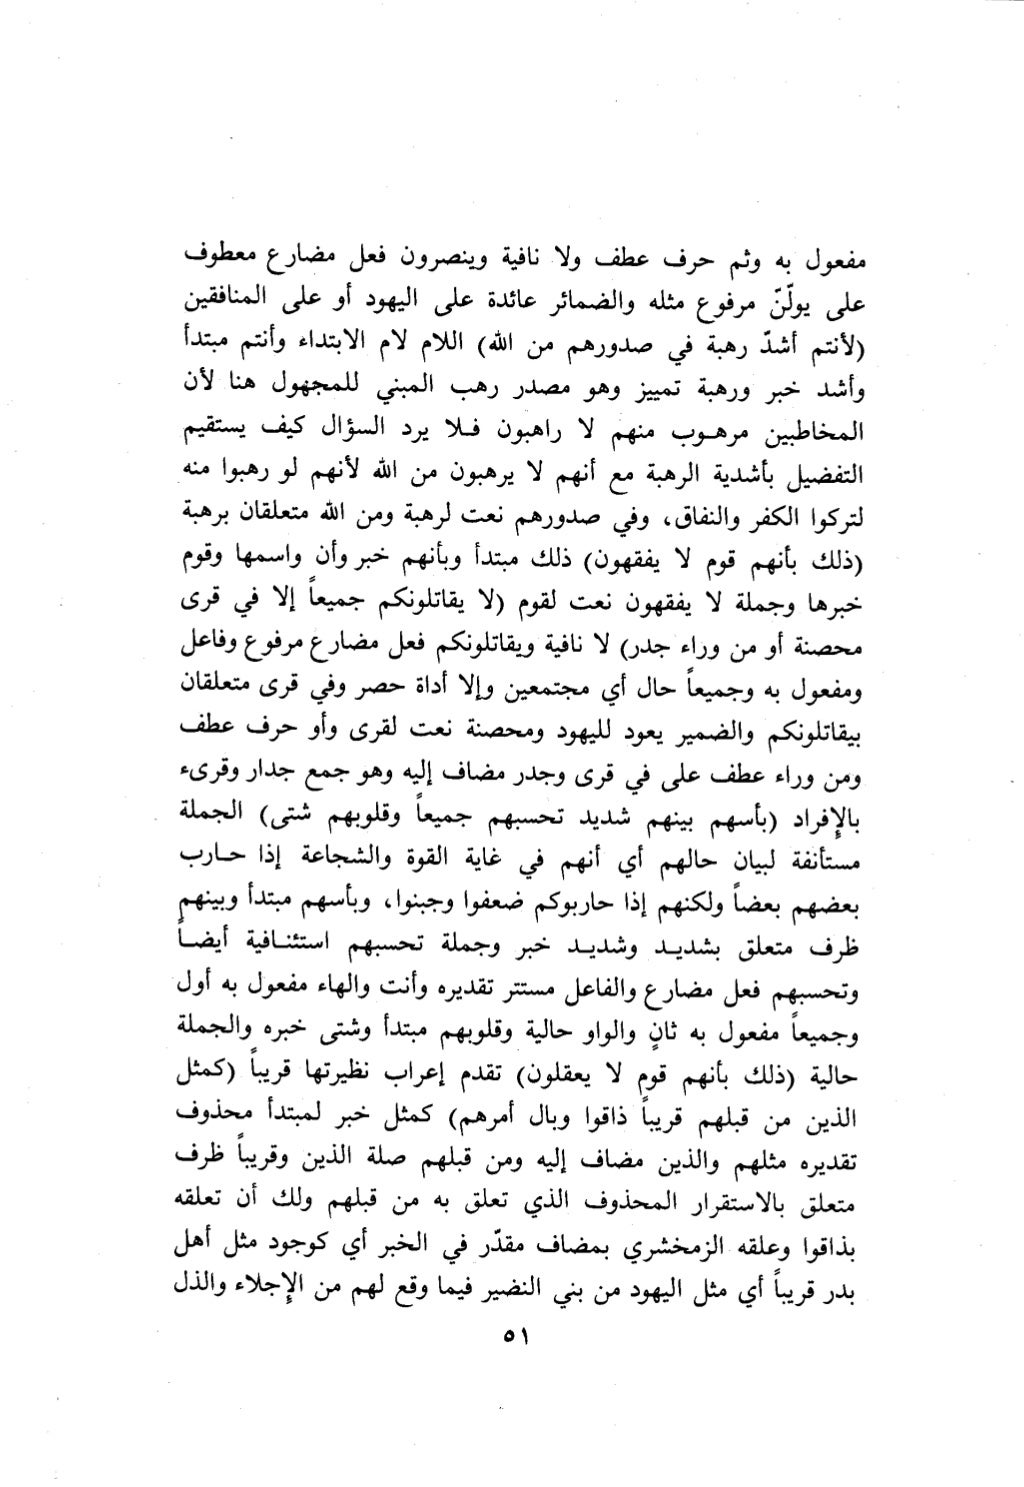 مفعول به وثم حرف عطف ولا نافية وينصرون فعل مضارع معطوف
على يولّنّ مرفوع مثله والضمائر عائدة على اليهود أو على المنافقين
(لأنتم أشدّ رهبة في صدورهم من الله) اللام لام الابتداء وأنتم مبتدأ
وأشد خبر ورهبة تمييز وهو مصدر رهب المبني للمجهول هنا لأن
المخاطبين مرهوب منهم لا راهبون فلا يرد السؤال كيف يستقيم
التفضيل بأشدية الرهبة مع أنهم لا يرهبون من الله لأنهم لو رهبوا منه
لتركوا الكفر والنفاق، وفي صدورهم نعت لرهبة ومن الله متعلقان برهبة
(ذلك بأنهم قوم لا يفقهون) ذلك مبتدأ وبأنهم خبر وأن واسمها وقوم
خبرها وجملة لا يفقهون نعت لقوم (لا يقاتلونكم جميعاً إلا في قرى
محصنة أو من وراء جدر) لا نافية ويقاتلونكم فعل مضارع مرفوع وفاعل
ومفعول به وجميعاً حال أي مجتمعين وإلا أداة حصر وفي قرى متعلقان
بيقاتلونكم والضمير يعود لليهود ومحصنة نعت لقرى وأو حرف عطف
ومن وراء عطف على في قرى وجدر مضاف إليه وهو جمع جدار وقرىء
بالإفراد (بأسهم بينهم شديد تحسبهم جميعاً وقلوبهم شتى) الجملة
مستأنفة لبيان حالهم أي أنهم في غاية القوة والشجاعة إذا حارب
بعضهم بعضاً ولكنهم إذا حاربوكم ضعفوا وجبنوا، وبأسهم مبتدأ وبينهم
ظرف متعلق بشديد وشديد خبر وجملة تحسبهم استئنافية أيضاً
وتحسبهم فعل مضارع والفاعل مستتر تقديره وأنت والهاء مفعول به أول
وجميعاً مفعول به ثانٍ والواو حالية وقلوبهم مبتدأ وشتى خبره والجملة
حالية (ذلك بأنهم قوم لا يعقلون) تقدم إعراب نظيرتها قريباً (كمثل
الذين من قبلهم قريباً ذاقوا وبال أمرهم) كمثل خبر لمبتدأ محذوف
تقديره مثلهم والذين مضاف إليه ومن قبلهم صلة الذين وقريباً ظرف
متعلق بالاستقرار المحذوف الذي تعلق به من قبلهم ولك أن تعلقه
بذاقوا وعلقه الزمخشري بمضاف مقدّر في الخبر أي كوجود مثل أهل
بدر قريباً أي مثل اليهود من بني النضير فيما وقع لهم من الإجلاء والذل
٥١